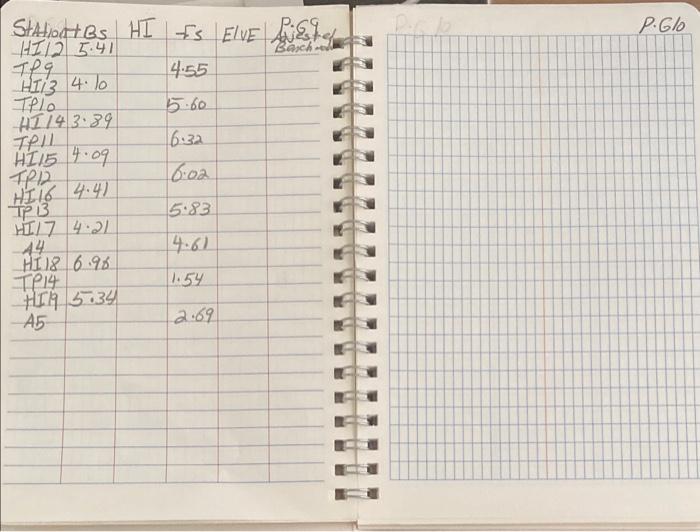 Station +Bs HI -Fs ElVE P.G9
HI12 5.41
TP9 4.55
HI13 4.10
TP10 5.60
HI14 3.89
TP11 6.32
HI15 4.09
TP12 6.02
HI16 4.41
TP13 5.83
HI17 4.21
A4 4.61
HI18 6.98
TP14 1.54
HI19 5.34
A5 2.69
P.G10